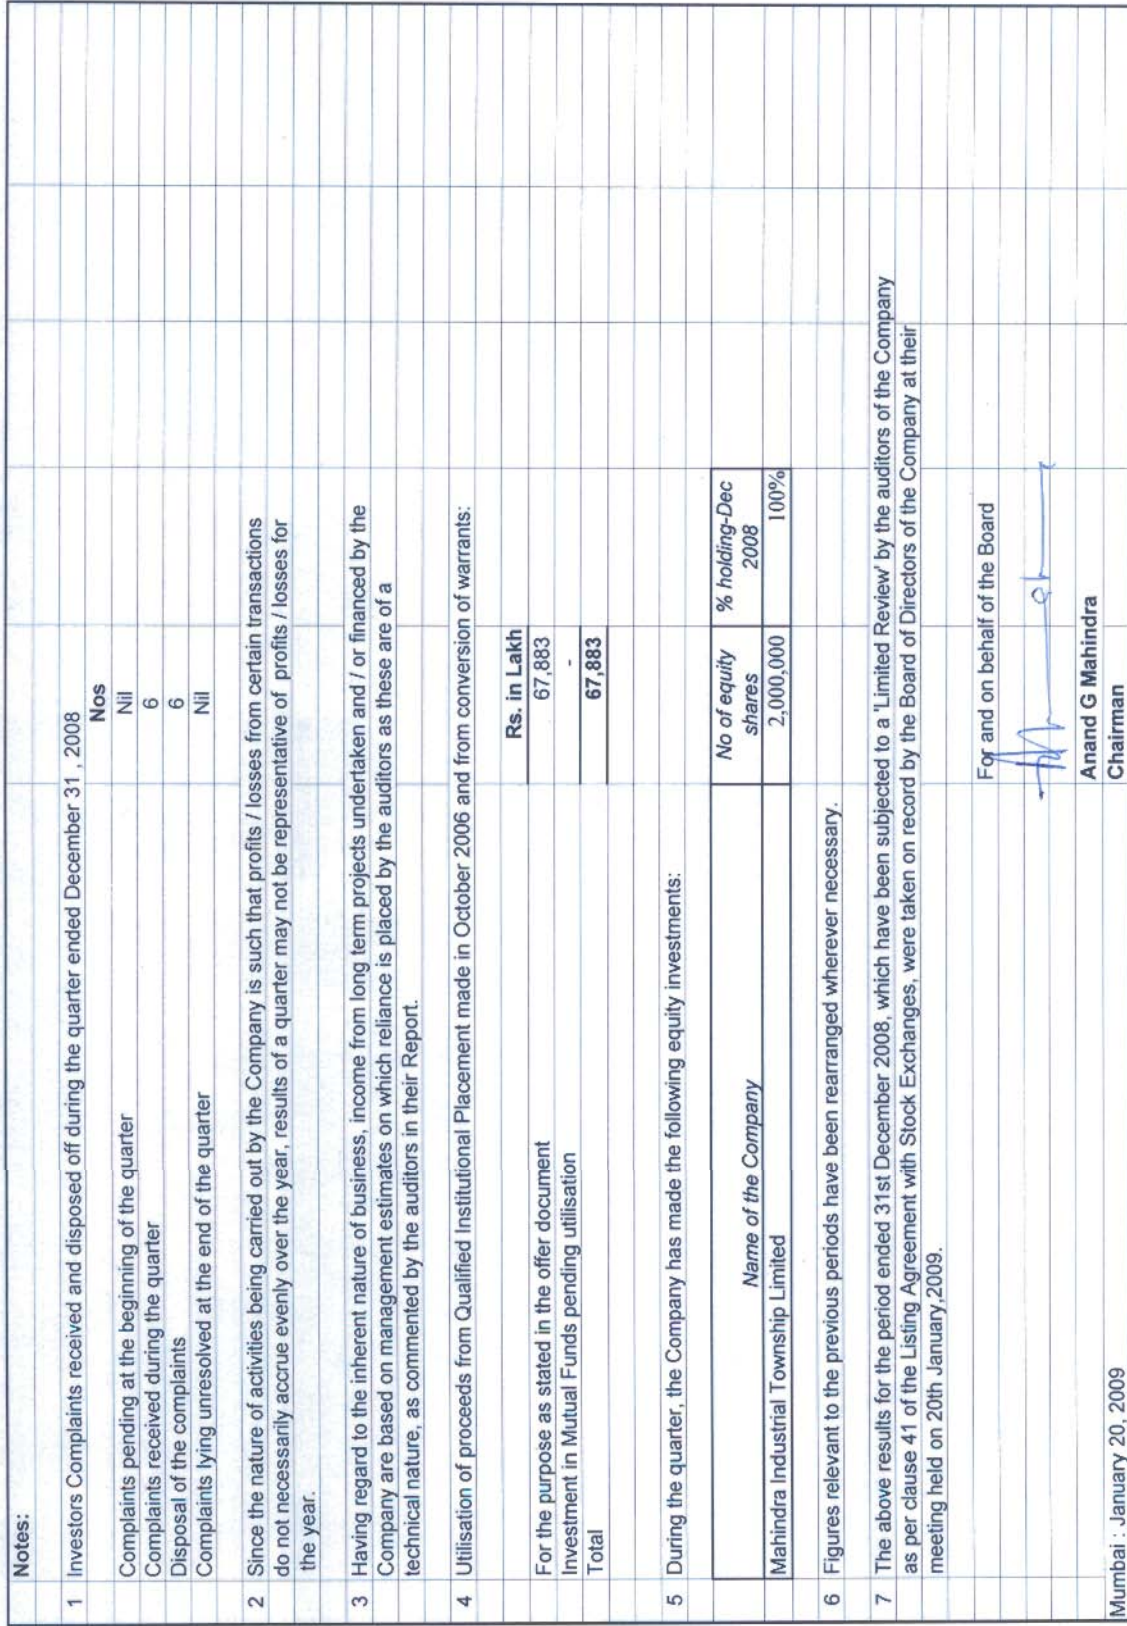 Notes:
1 Investors Complaints received and disposed off during the quarter ended December 31 , 2008
Nos
Complaints pending at the beginning of the quarter Nil
Complaints received during the quarter 6
Disposal of the complaints 6
Complaints lying unresolved at the end of the quarter Nil
2 Since the nature of activities being carried out by the Company is such that profits / losses from certain transactions
do not necessarily accrue evenly over the year, results of a quarter may not be representative of profits / losses for
the year.
3 Having regard to the inherent nature of business, income from long term projects undertaken and / or financed by the
Company are based on management estimates on which reliance is placed by the auditors as these are of a
technical nature, as commented by the auditors in their Report.
4 Utilisation of proceeds from Qualified Institutional Placement made in October 2006 and from conversion of warrants:
Rs. in Lakh
For the purpose as stated in the offer document 67,883
Investment in Mutual Funds pending utilisation -
Total 67,883
5 During the quarter, the Company has made the following equity investments:
Name of the Company No of equity shares % holding-Dec 2008
Mahindra Industrial Township Limited 2,000,000 100%
6 Figures relevant to the previous periods have been rearranged wherever necessary.
7 The above results for the period ended 31st December 2008, which have been subjected to a 'Limited Review' by the auditors of the Company
as per clause 41 of the Listing Agreement with Stock Exchanges, were taken on record by the Board of Directors of the Company at their
meeting held on 20th January,2009.
For and on behalf of the Board
Anand G Mahindra
Chairman
Mumbai : January 20, 2009